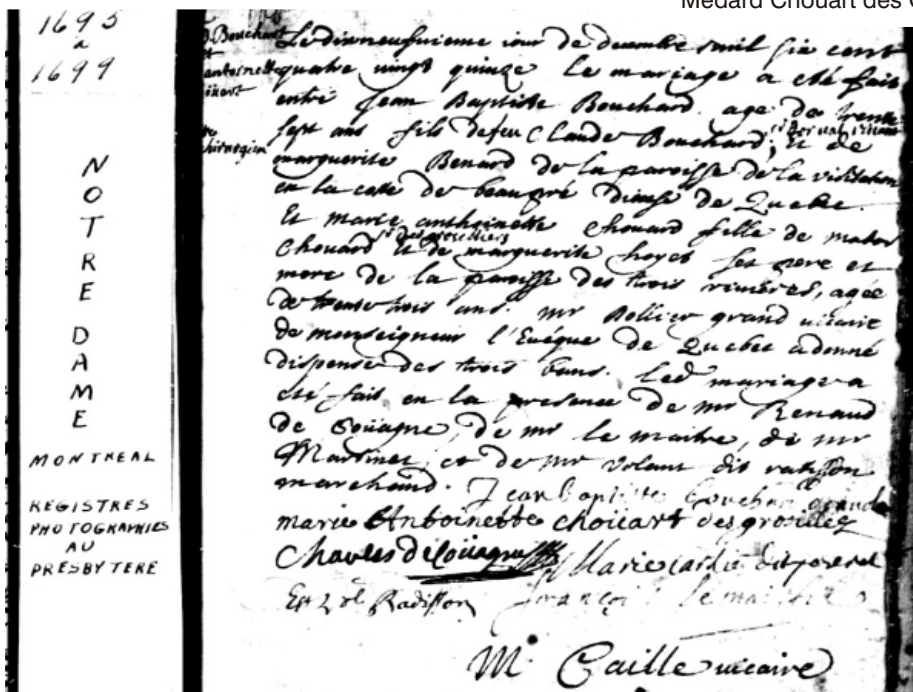 Médard Chouart des
1695
a
1699
NOTRE DAME
MONTREAL
REGISTRES
PHOTOGRAPHIES
AU
PRESBYTERE
Bouchard
antoinette
chirurgien
Le dixneufvieme iour de decembre mil six cent
quatre vingt quinze le mariage a eté fait
entre Jean Baptiste Bouchard agé de trente
sept ans fils defeu Claude Bouchard, et de
marguerite Benard de la paroisse de la visitation
en la coste de beaupré diocese de Quebec.
Et marie anthoinette Chouard fille de
sr des groselliers
Chouard et de marguerite hayet ses pere et
mere de la paroisse des trois rivieres, agée
de trente trois ans. mr Dollier grand vicaire
de monseigneur l'Evêque de Quebec a donné
dispense des trois bans. Led mariage a
eté fait en la presence de mr Renaud
de Coüagne, de mr le maitre, de mr
Martinet et de mr volant dit ratisson
marchand. Jean baptiste
marie Antoinette choüart des groselliez
Charles de Coüagne Marie
Est Vol Radisson françois le maistre
Mr Caille vicaire